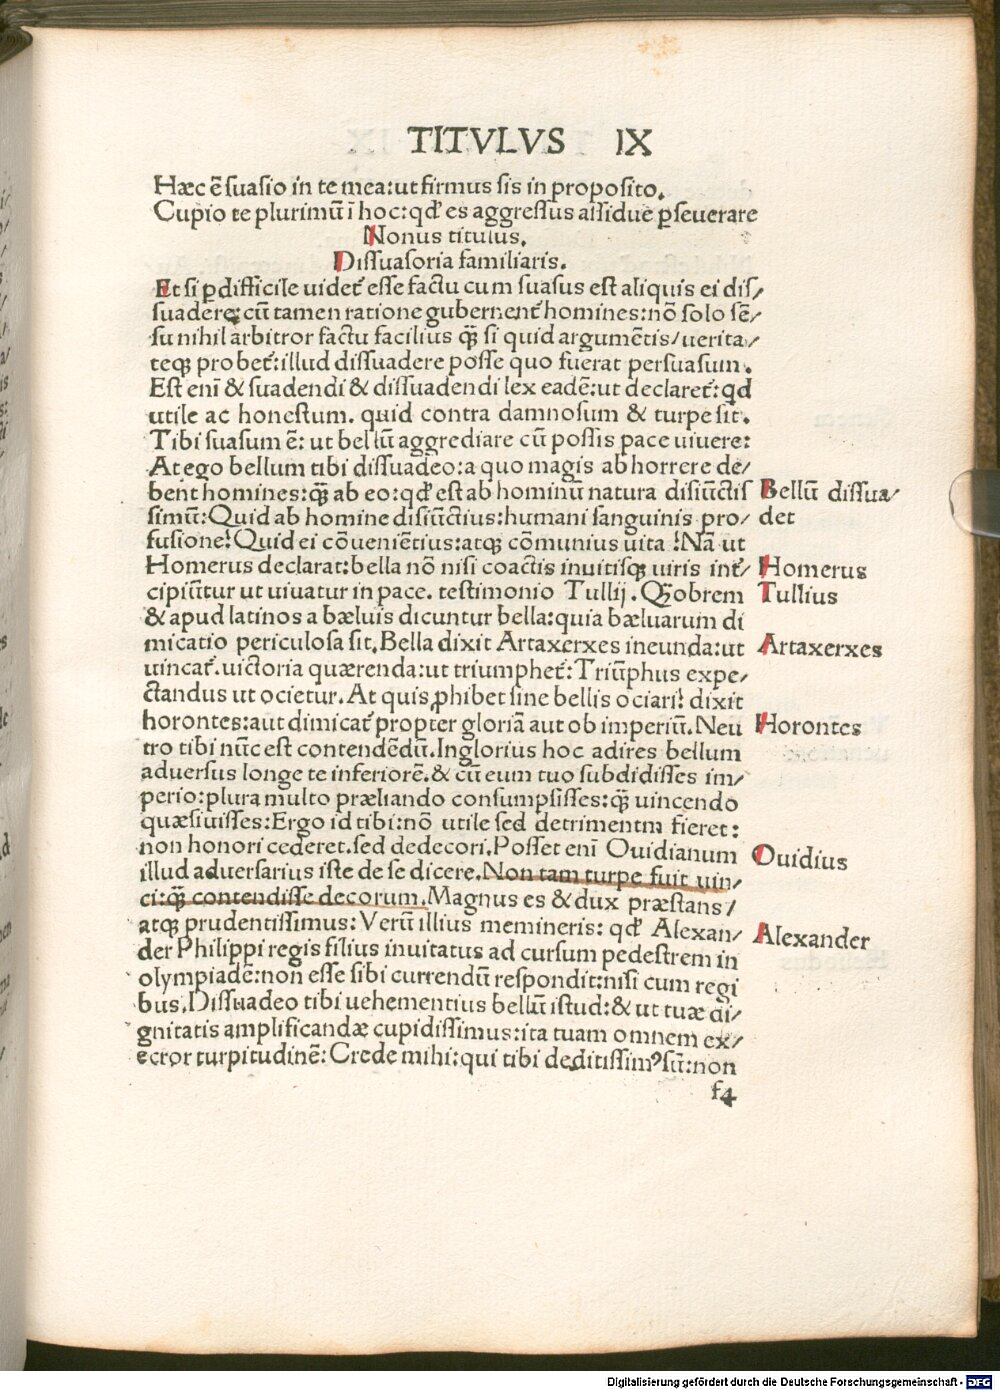 TITVLVS IX
Hæc ē ſuaſio in te mea: ut firmus ſis in propoſito.
Cupio te plurimū ī hoc: qđ es aggreſſus aſſidue ꝑſeuerare
Nonus titulus.
Diſſuaſoria familiaris.
Et ſi ꝑdifficile uidet᷑ eſſe factu cum ſuaſus eſt aliquis ei diſ/
ſuadere: cū tamen ratione gubernent᷑ homines: nō ſolo ſē/
ſu nihil arbitror factu facilius q̄ꝫ ſi quid argumētis/uerita/
teqꝫ probet᷑: illud diſſuadere poſſe quo fuerat perſuaſum.
Eſt enī & ſuadendi & diſſuadendi lex eadē: ut declaret᷑: qd
utile ac honeſtum. quid contra damnoſum & turpe ſit.
Tibi ſuaſum ē: ut bellū aggrediare cū poſſis pace uiuere:
At ego bellum tibi diſſuadeo: a quo magis abhorrere de/
bent homines: q̄ꝫ ab eo: qđ eſt ab hominū natura diſiūctiſ
ſimū: Quid ab homine diſiūctius: humani ſanguinis pro/
fuſione? Quid ei cōueniētius: atqꝫ cōmunius uita? Nā ut
Homerus declarat: bella nō niſi coactis inuitiſqꝫ uiris int᷑/
cipiūtur ut uiuatur in pace. teſtimonio Tullij. Q̄ꝫobrem
& apud latinos a bæluis dicuntur bella: quia bæluarum di
micatio periculoſa ſit. Bella dixit Artaxerxes ineunda: ut
uincat᷑. uictoria quærenda: ut triumphet᷑: Triūphus expe/
ctandus ut ocietur. At quis ꝓhibet ſine bellis ociari? dixit
horontes: aut dimicat᷑ propter gloriā aut ob imperiū. Neu
tro tibi nūc eſt contendēdū. Inglorius hoc adires bellum
aduerſus longe te inferiorē. & cū eum tuo ſubdidiſſes im/
perio: plura multo præliando conſumpſiſſes: q̄ꝫ uincendo
quæſiuiſſes: Ergo id tibi: nō utile ſed detrimentm fieret:
non honori cederet. ſed dedecori. Poſſet enī Ouidianum
illud aduerſarius iſte de ſe dicere. Non tam turpe fuit uin/
ci: q̄ꝫ contendiſſe decorum. Magnus es & dux præſtans/
atqꝫ prudentiſſimus: Verū illius memineris: qđ Alexan/
der Philippi regis filius inuitatus ad curſum pedeſtrem in
olympiade: non eſſe ſibi currendū reſpondit: niſi cum regi
bus. Diſſuadeo tibi uehementius bellū iſtud: & ut tuæ di/
gnitatis amplificandæ cupidiſſimus: ita tuam omnem ex/
ecror turpitudinē: Crede mihi: qui tibi deditiſſimꝰ ſū: non
f4
Bellū diſſua/
det
Homerus
Tullius
Artaxerxes
Horontes
Ouidius
Alexander
Digitalisierung gefördert durch die Deutsche Forschungsgemeinschaft - DFG